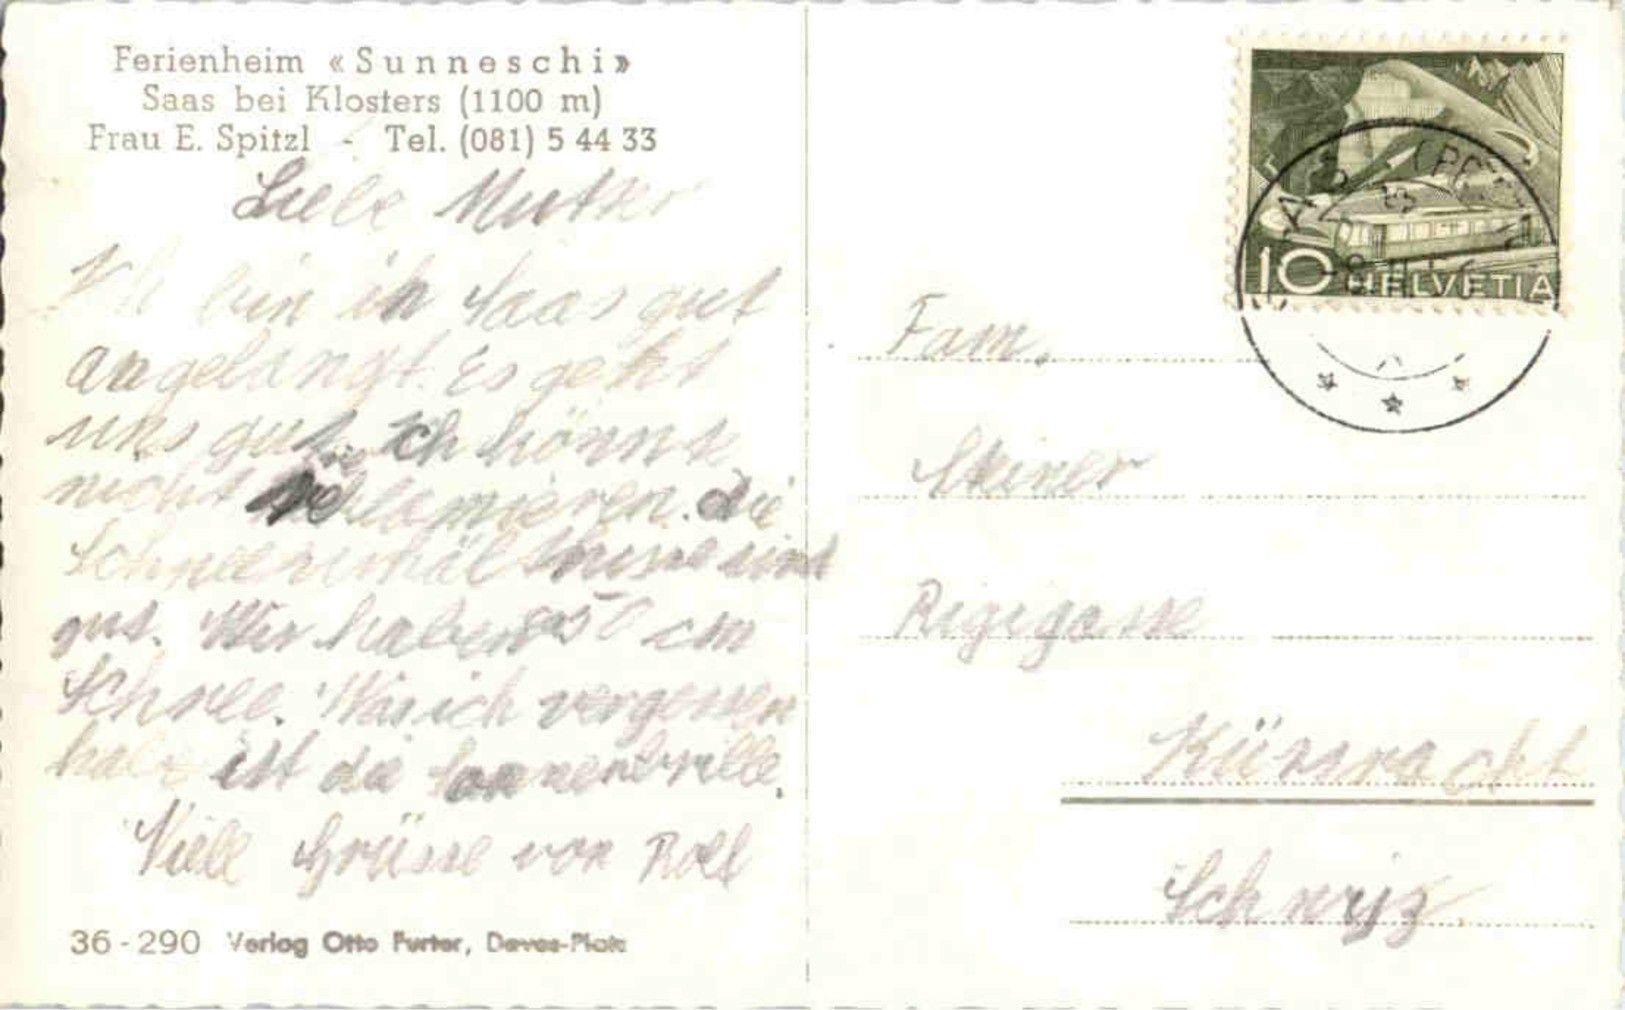 Ferienheim «Sunneschi»
Saas bei Klosters (1100 m)
Frau E. Spitzl - Tel. (081) 5 44 33
Liebe Mutter
Ich bin in Saas gut
angelangt. Es geht
uns gut. ich könnte
nicht reklamieren. die
Schneeverhältnisse sind
gut. Wir haben 50 cm
Schnee. Was ich vergessen
habe ist die Sonnenbrille.
Viele Grüsse von Rolf
36-290 Verlag Otto Furter, Davos-Platz
10 HELVETIA
Fam.
Steiner
Rigigasse
Küssnacht
Schwyz